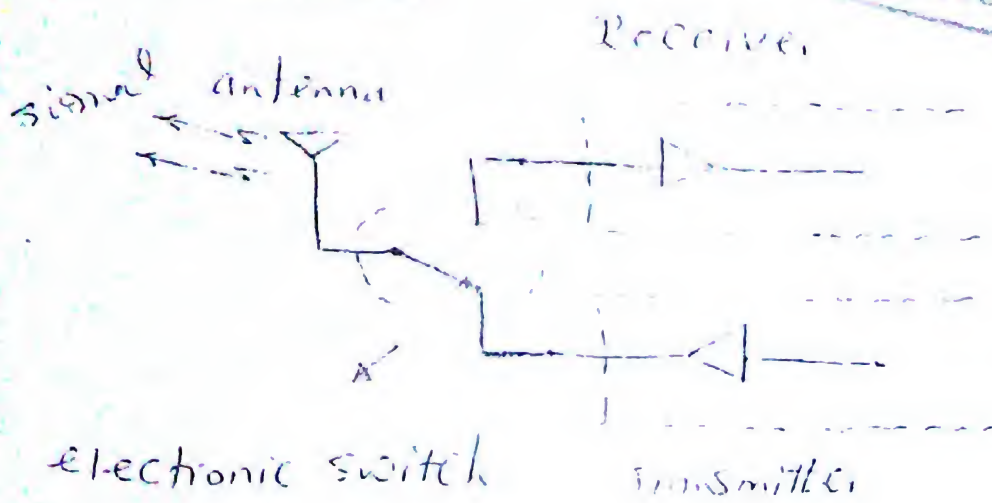 Receiver
signal antenna
A
electronic switch transmitter